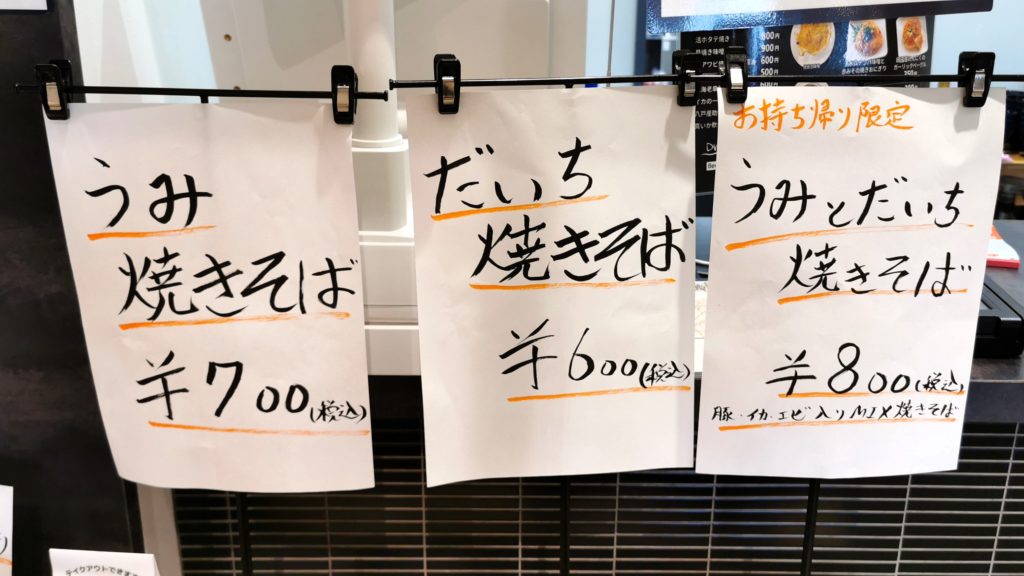 うみ
焼きそば
¥700(税込)
だいち
焼きそば
¥600(税込)
お持ち帰り限定
うみとだいち
焼きそば
¥800(税込)
豚・イカ・エビ入りMIX焼きそば
活ホタテ焼き
900円
600円
500円
テイクアウトできます